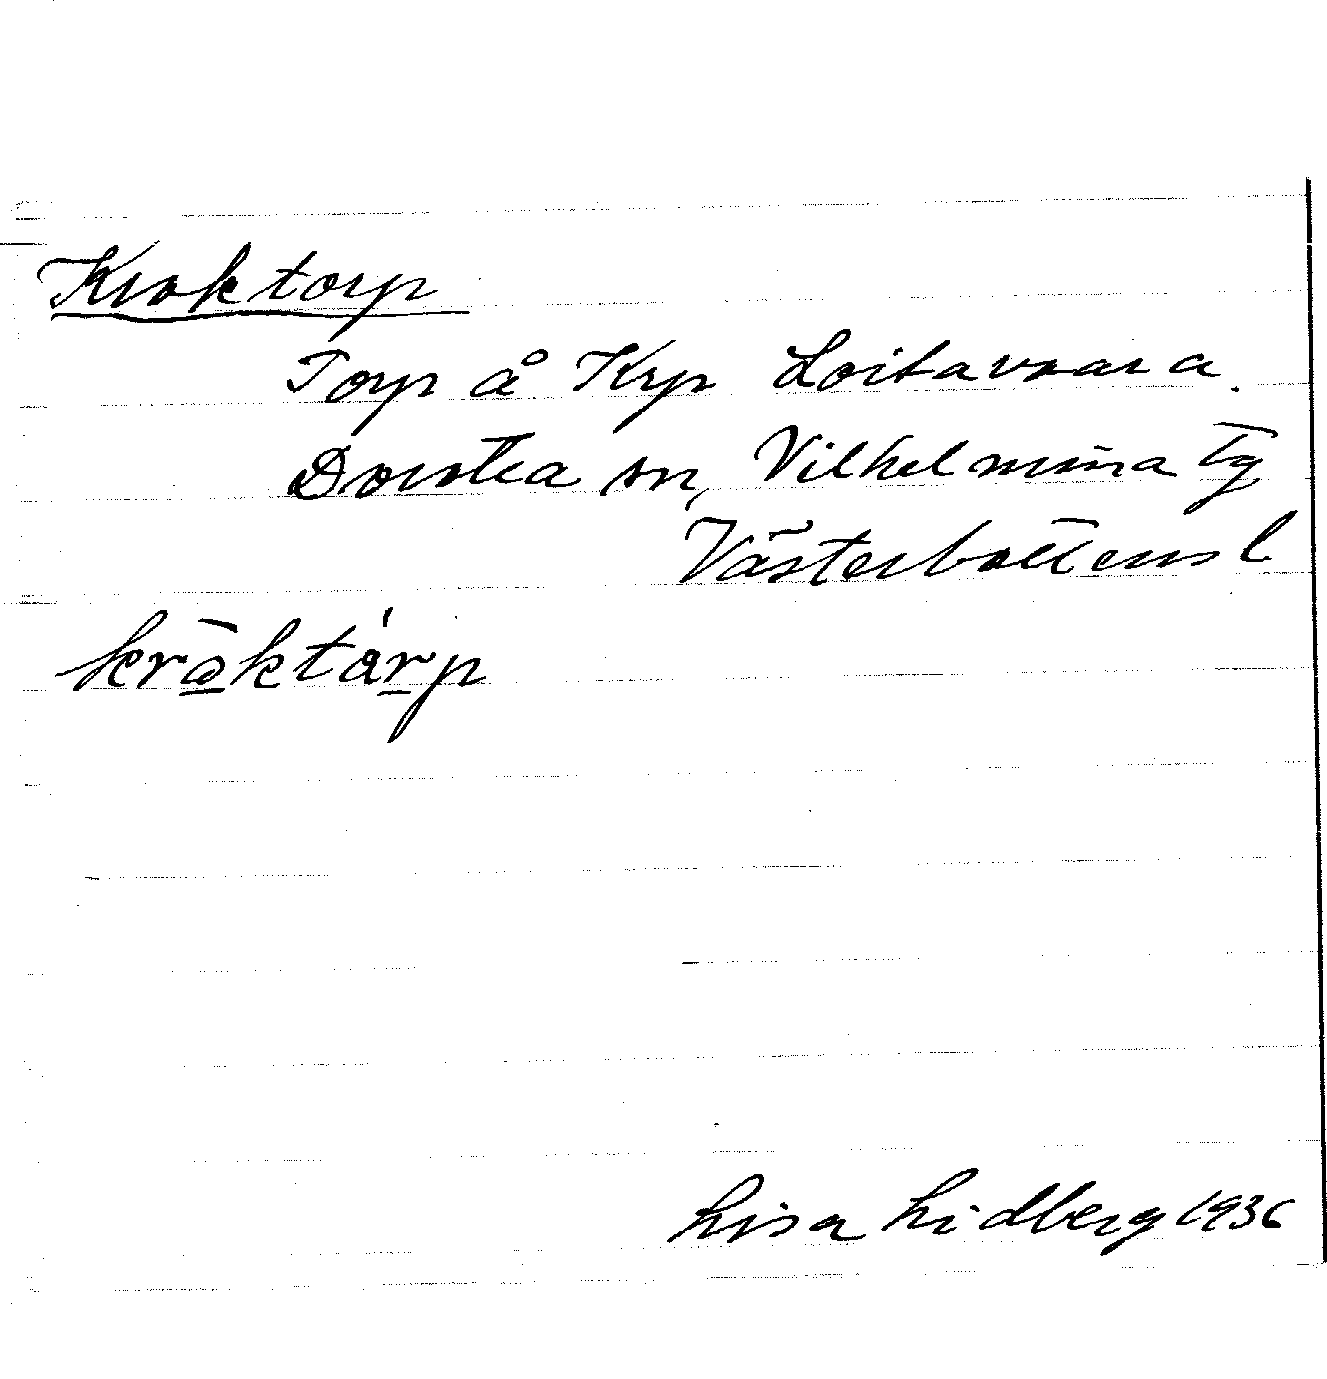 Kroktorp
Torp å Krp Loitavaara.
Dorotea sn, Vilhelmina Tg
Västerbottens l
kråktårp
Lisa Lidberg 1936